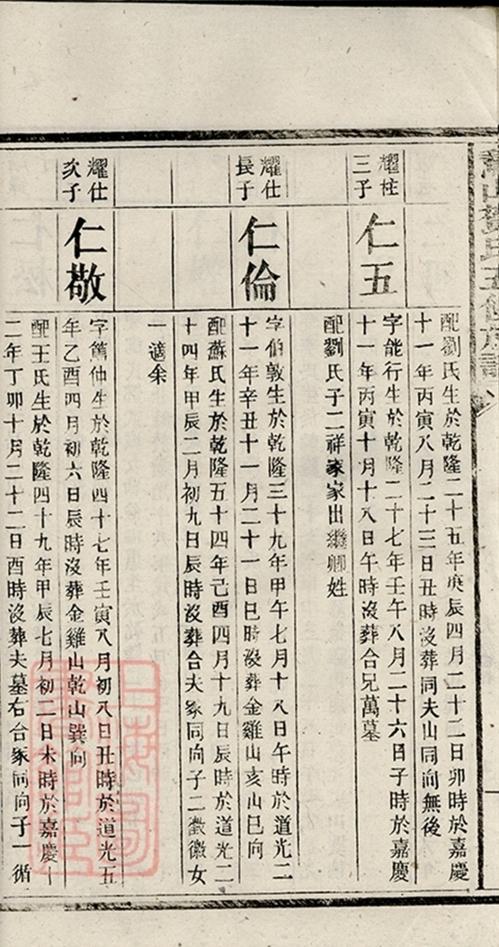 配劉氏生於乾隆二十五年庚辰四月二十二日卯時於嘉慶
十一年丙寅八月二十三日丑時沒葬同夫山同向無後
耀柱
三子
仁五
字能行生於乾隆二十七年壬午八月二十六日子時於嘉慶
十一年丙寅十月十八日午時沒葬合兄萬墓
配劉氏子二祥家家出繼卿姓
耀仕
長子
仁倫
字伯敦生於乾隆三十九年甲午七月十八日午時於道光二
十一年辛丑十一月二十一日巳時沒葬金雞山亥山巳向
配蘇氏生於乾隆五十四年己酉四月十九日辰時於道光二
十四年甲辰二月初九日辰時沒葬合夫冢同向子二徵徽女
一適余
耀仕
次子
仁敬
字篤仲生於乾隆四十七年壬寅八月初八日丑時於道光五
年乙酉四月初六日辰時沒葬金雞山乾山巽向
配王氏生於乾隆四十九年甲辰七月初二日未時於嘉慶十
二年丁卯十月二十二日酉時沒葬夫墓右合冢同向子一循